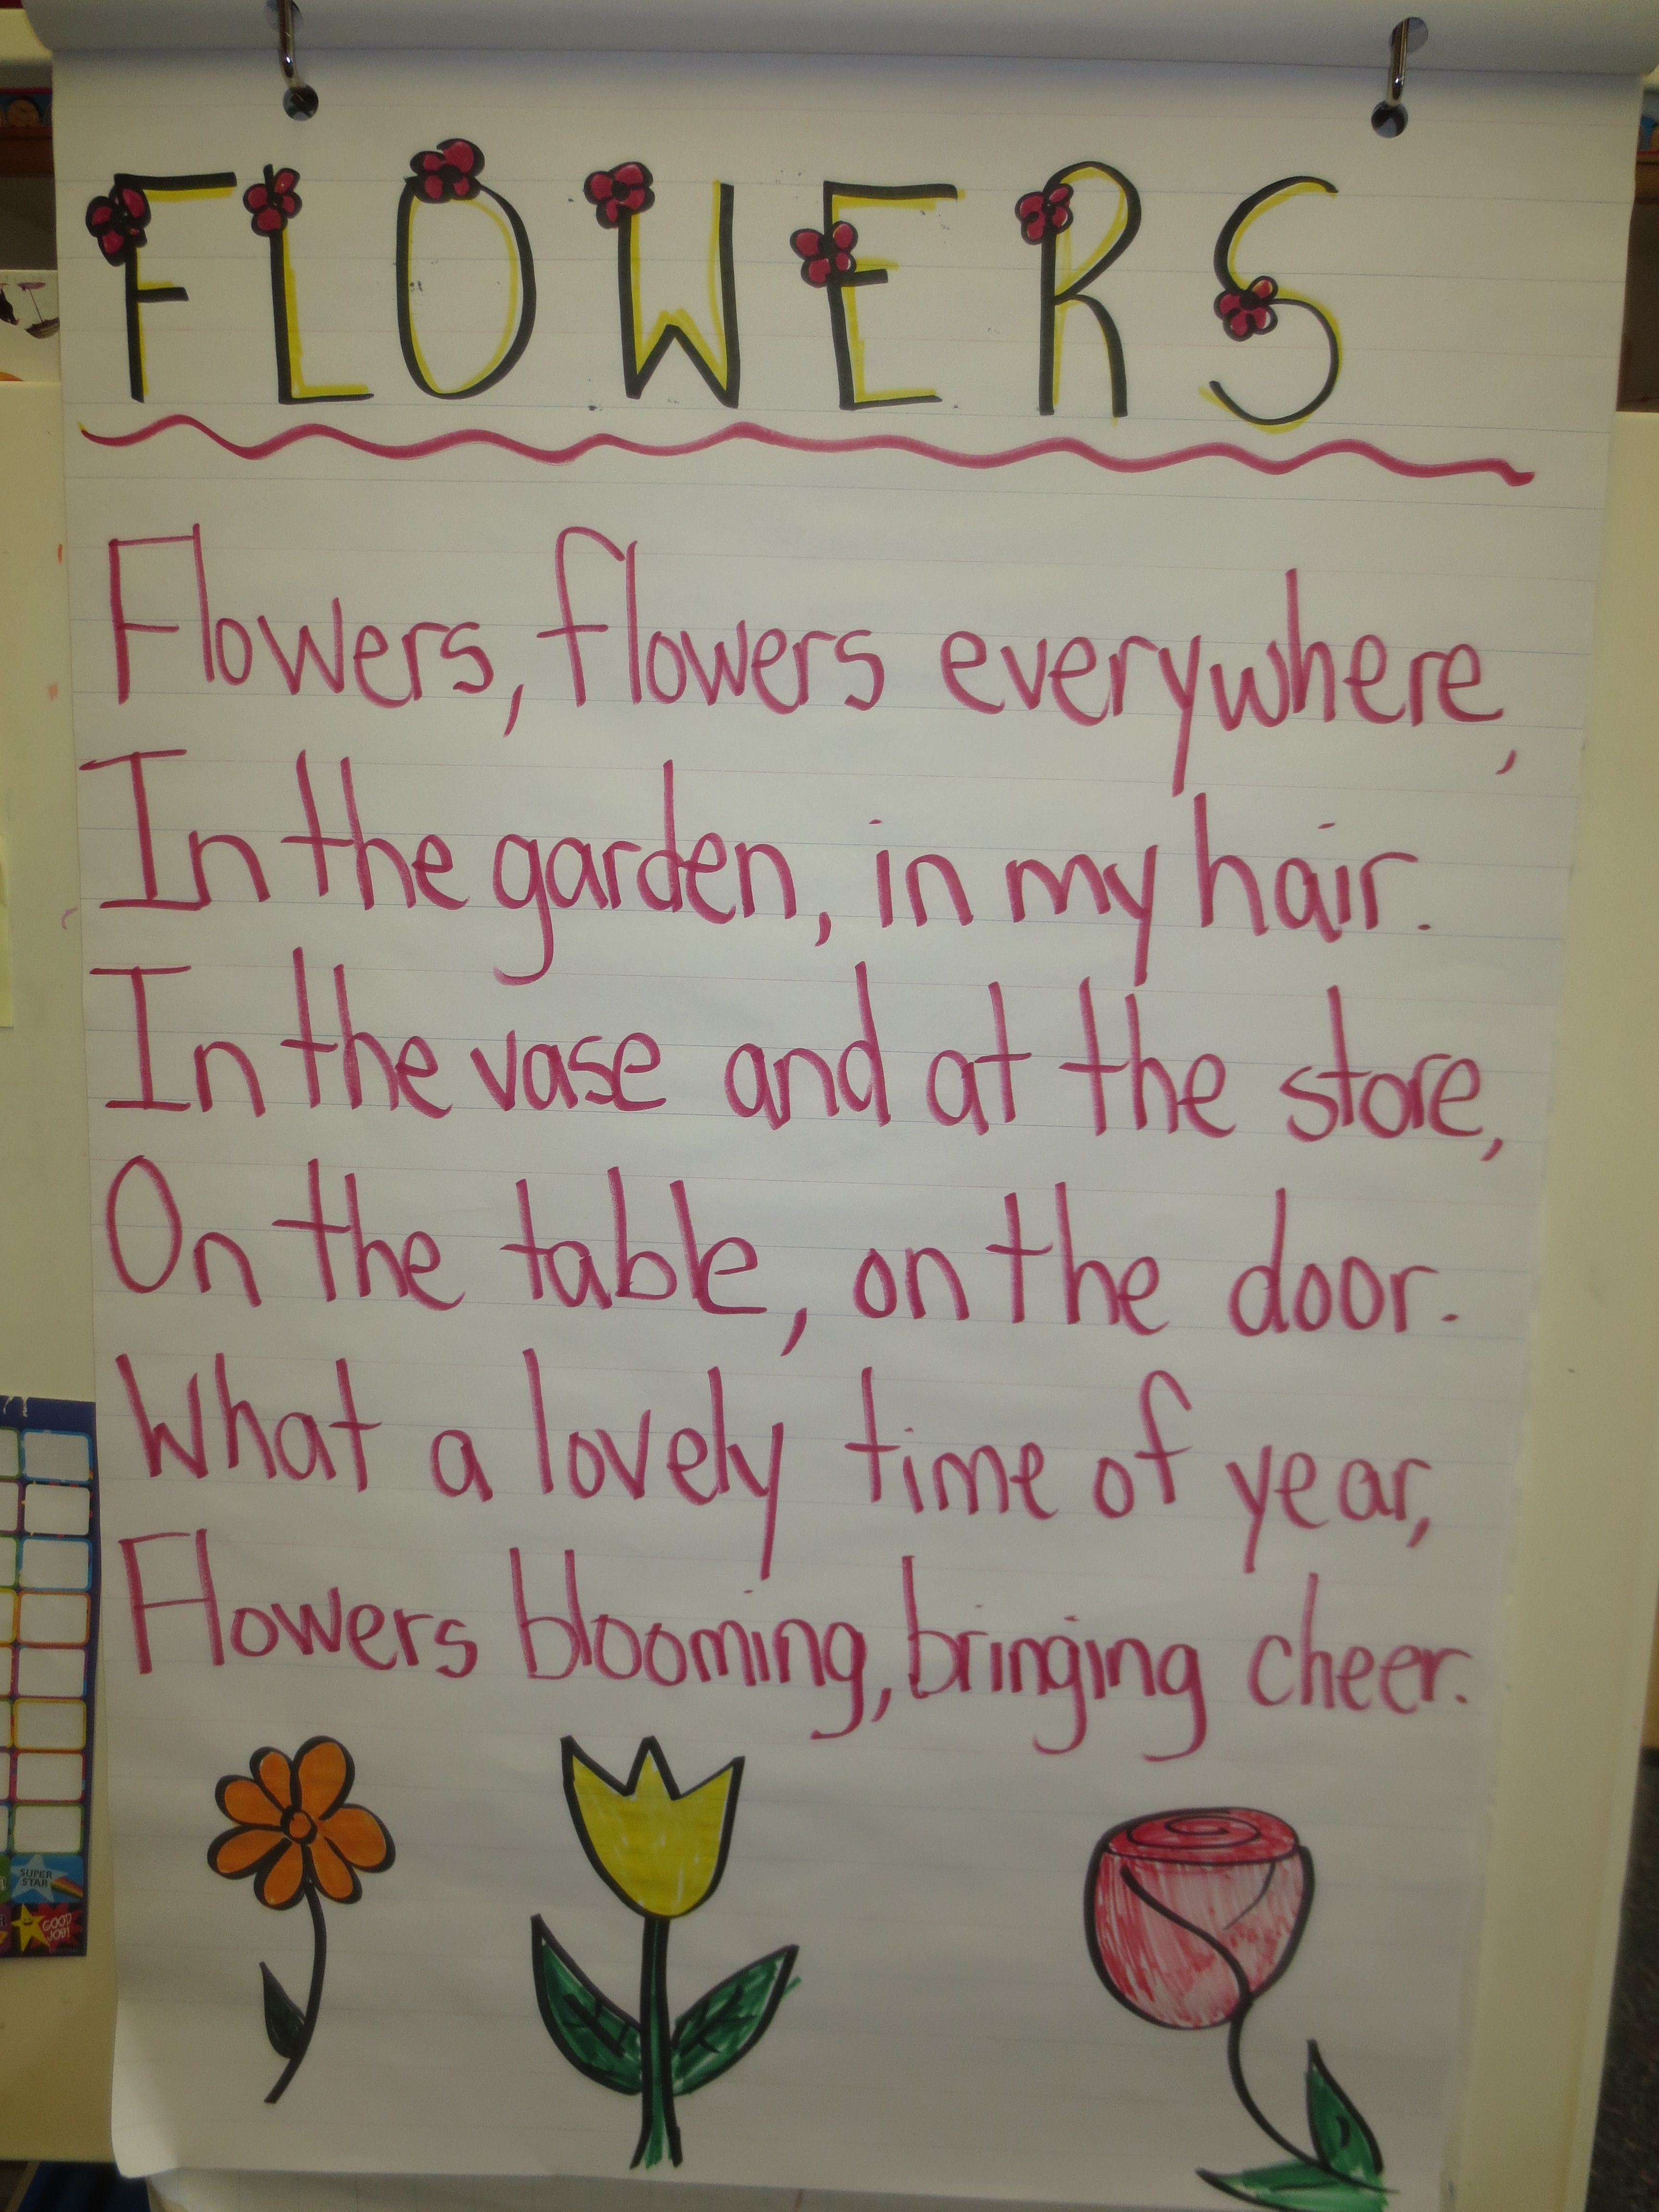 FLOWERS
Flowers, flowers everywhere,
In the garden, in my hair.
In the vase and at the store,
On the table, on the door.
What a lovely time of year,
Flowers blooming, bringing cheer.
SUPER
STAR
GOOD
JOB!